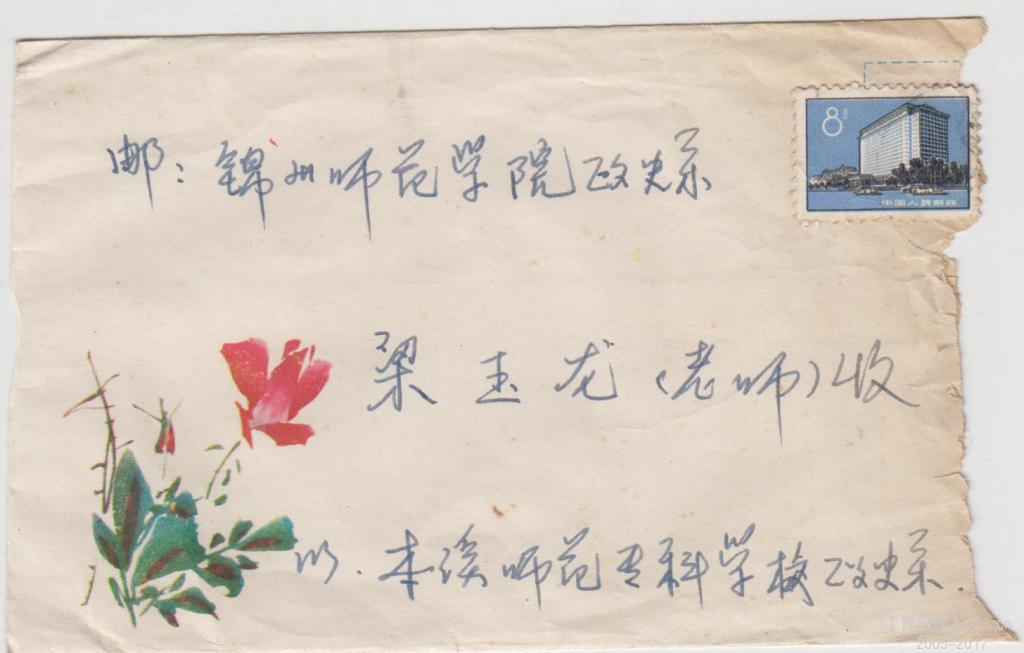 8分
中国人民邮政
邮：锦州师范学院政史系
梁玉龙（老师）收
本溪师范专科学校政史系.
2005-2017